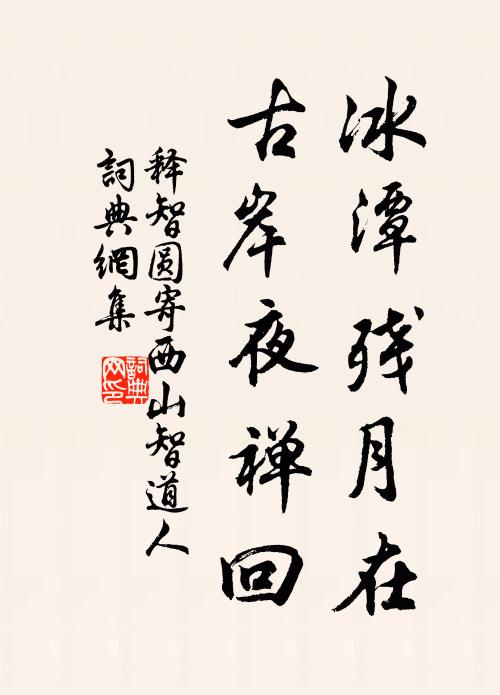 冰潭残月在
古岸夜禅回
释智圆寄西山智道人
詞典網集
詞典網印